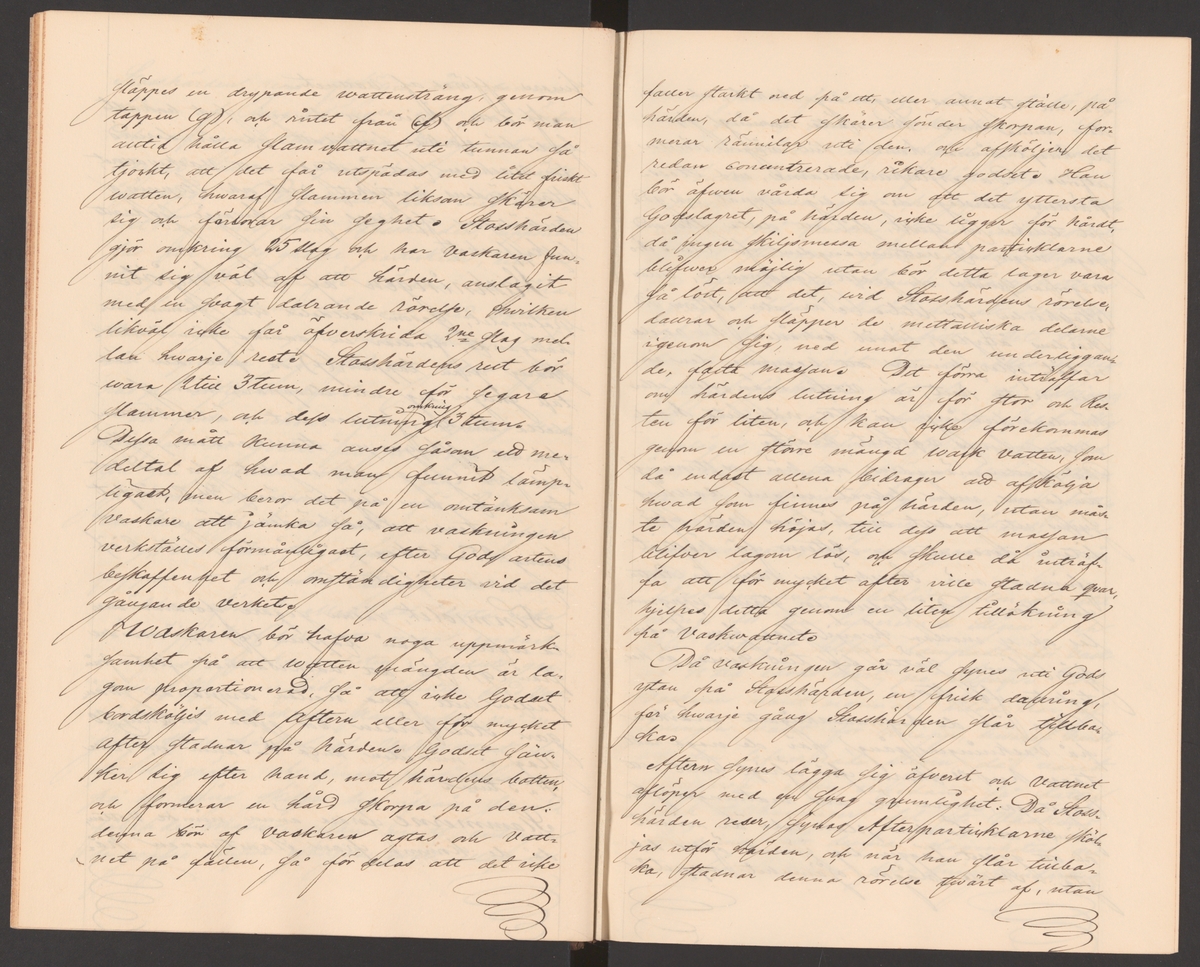 släppes en drypande wattensträng, genom
tappen (g), och röret från (f) och bör man
alltid hålla slamvattnet uti tunnan så
tjockt, att det får utspädas med litet friskt
watten, hwaraf slammen liksom skärer
sig och förlorar sin seghet. Stosshärden
gjör omkring 25 slag och har vaskaren fun-
nit sig väl af att härden, anslagit
med en svagt dalrande rörelse, hvilken
likväl icke får öfverskrida 2ne slag mel-
lan hwarje rest. Stosshärdens rest bör
wara 2 till 3 tum, mindre för segare
slammer, och dess lutning omkring 3 tum.
Dessa mått kunna anses såsom ett me-
deltal af hwad man funnit lämp-
ligast, men beror det på en omtänksam
vaskare att jämka så, att vaskningen
verkställes förmånligast, efter Godsartens
beskaffenhet och omständigheter vid det
gångande verket.
Hwaskaren bör hafva noga uppmärk-
samhet på att watten mängden är la-
gom proportionerad, så att icke Godset
bordsköljes med Aftern eller för mycket
After stadnar på härden. Godset sän-
ker sig efter hand, mot härdens botten,
och formerar en hård skorpa på den:
denna bör af vaskaren agtas och vatt-
net på fällen, så fördelas att det icke
faller starkt ned på ett, eller annat ställe, på
härden, då det skärer sönder skorpan, for-
merar rännilar uti den, och afsköljer det
redan concentrerade, rikare godset. Han
bör äfwen vårda sig om att det yttersta
Godslagret, på härden, icke ligger för hårdt,
då ingen skiljsmessa mellan partiklarne
blifwer möjlig utan bör detta lager vara
så löst, att det, vid Stosshärdens rörelse,
daurar och släpper de mettalliska delarne
igenom sig, ned unat den underliggan-
de, fasta massan. Det förra inträffar
om härdens lutning är för stor och Res-
ten för liten, och kan icke förekommas
genom en större mängd wask vatten, som
då endast allena bidrager att afskölja
hwad som finnes på härden, utan mås-
te härden höjas, till dess att massan
blifver lagom lös, och skulle då inträf-
fa att för mycket after ville stadna qvar,
hjelpes detta genom en liten tillökning
på Vaskwattnet.
Då vaskningen går väl synes uti Gods
ytan på Stosshärden, en frisk daurring,
för hwarje gång Stosshärden slår tillba-
ka.
Aftern synes lägga sig äfverst och vattnet
aflöper med en svag grumlighet: Då Stoss-
härden reser, synas Afterpartiklarne sköl-
jas utför härden, och när han slår tillba-
ka, stadnar denna rörelse twärt af, utan